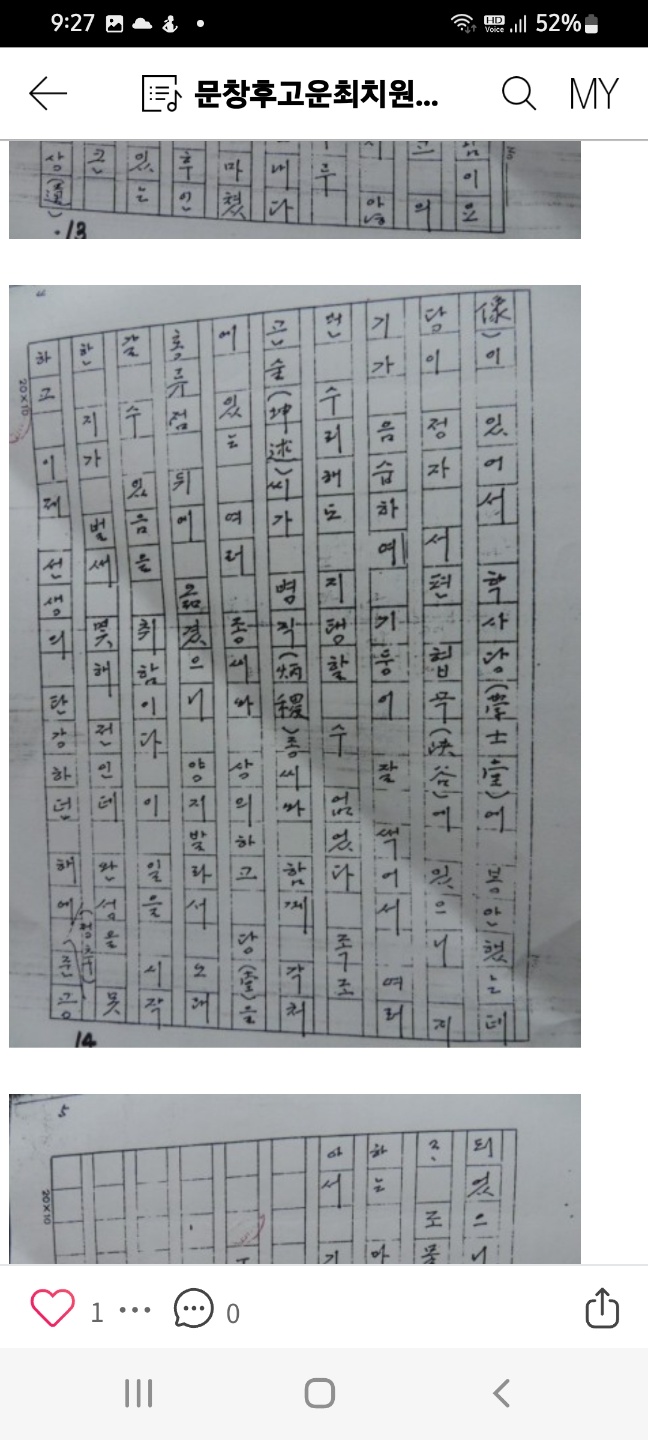 9:27
HD Voice 52%
문창후고운최치원... MY
이 오
의
내다
마쳤
후 인
있는
상(像)
13
像)이 있어서 학사당(學士堂)에 봉안했는데
담이 정자 서편 협곡(陜谷)에 있으니 지
기가 음습하여 기둥이 잘 썩어서 여러
번 수리해도 지탱할 수 없었다 족조
곤술(坤述)씨가 병직(炳稷)종씨와 함께 각처
에 있는 여러 종씨와 상의하고 당(堂)을
뒤에 옮겼으니 양지발라서 오래
갈 수 있음을 취함이다 이 일을 시작
한 지가 벌써 몇해 전인데 완성을 못
하고 이제 선생의 탄강하던 해에
20×10
14
5
되었으니
조물
하는 아
아서 기
20×10
1 0